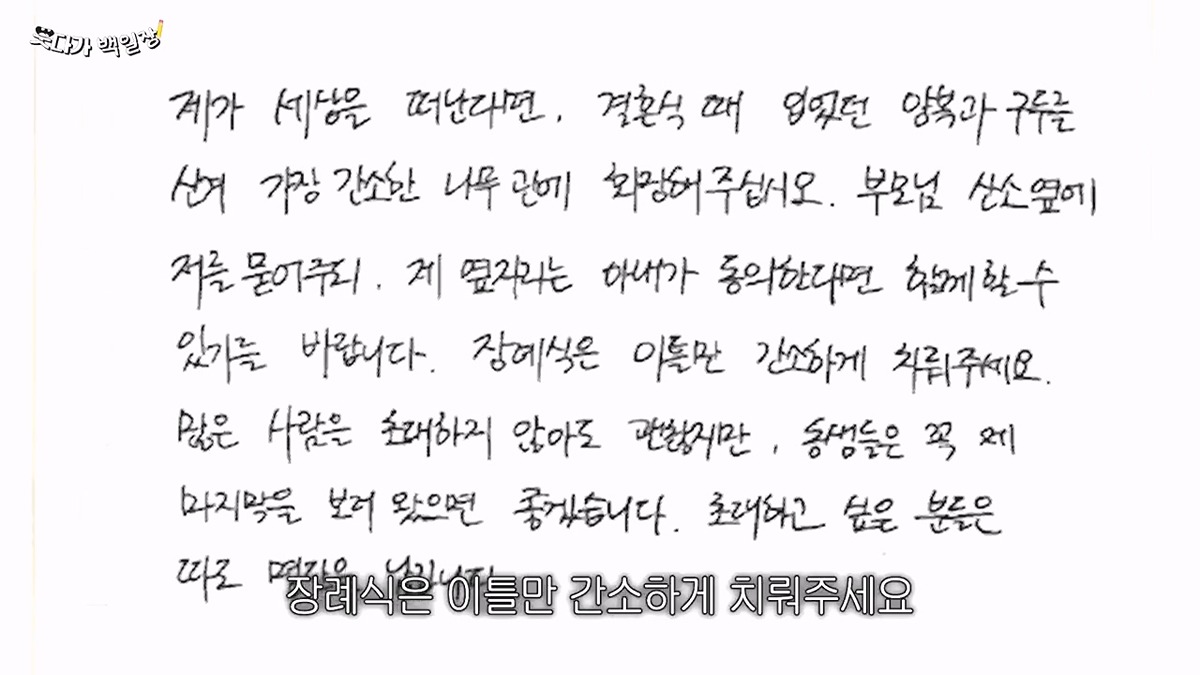 웃다가 백일장
제가 세상을 떠난다면, 결혼식 때 입었던 양복과 구두를
신겨 가장 간소한 나무 관에 화장해주십시오. 부모님 산소 옆에
저를 묻어주되, 제 옆자리는 아내가 동의한다면 함께할 수
있기를 바랍니다. 장례식은 이틀만 간소하게 치뤄주세요.
많은 사람을 초대하지 않아도 괜찮지만, 동생들은 꼭 제
마지막을 보러 왔으면 좋겠습니다. 초대하고 싶은 분들은
따로 명단을 남깁니다
장례식은 이틀만 간소하게 치뤄주세요